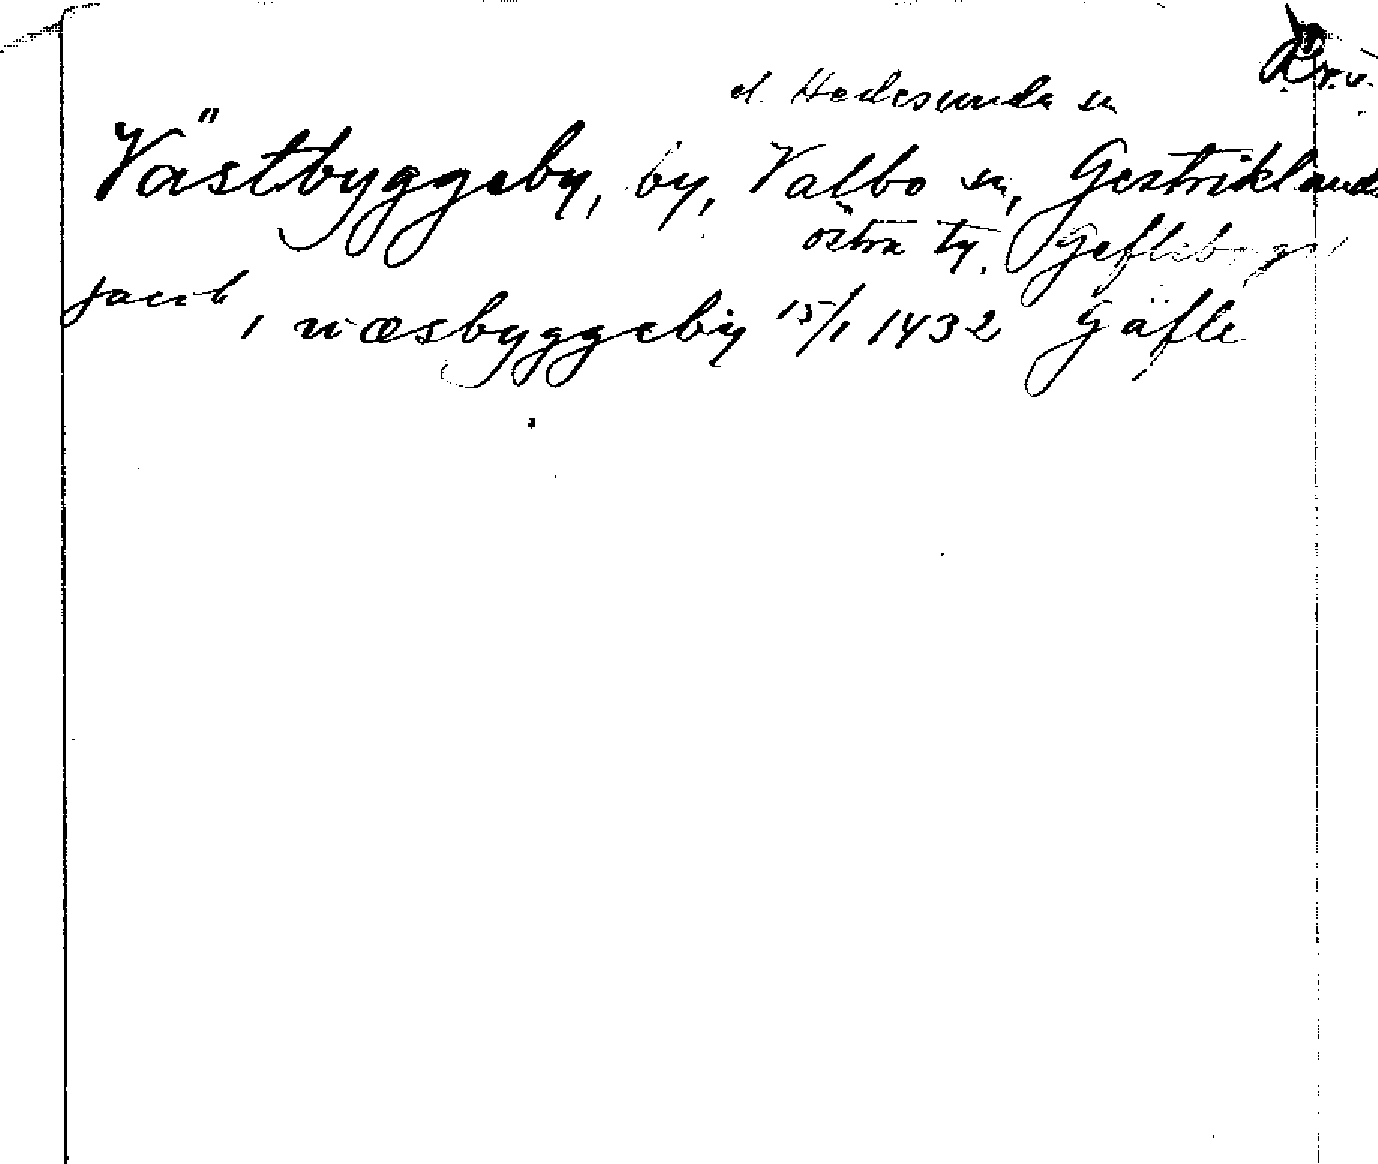 el. Hedesunda sn
Västbyggeby, by, Valbo sn, Gestriklands
östra tg. Gefleborgs
Jacob
i wæsbyggeby 15/1 1432 Gäfle